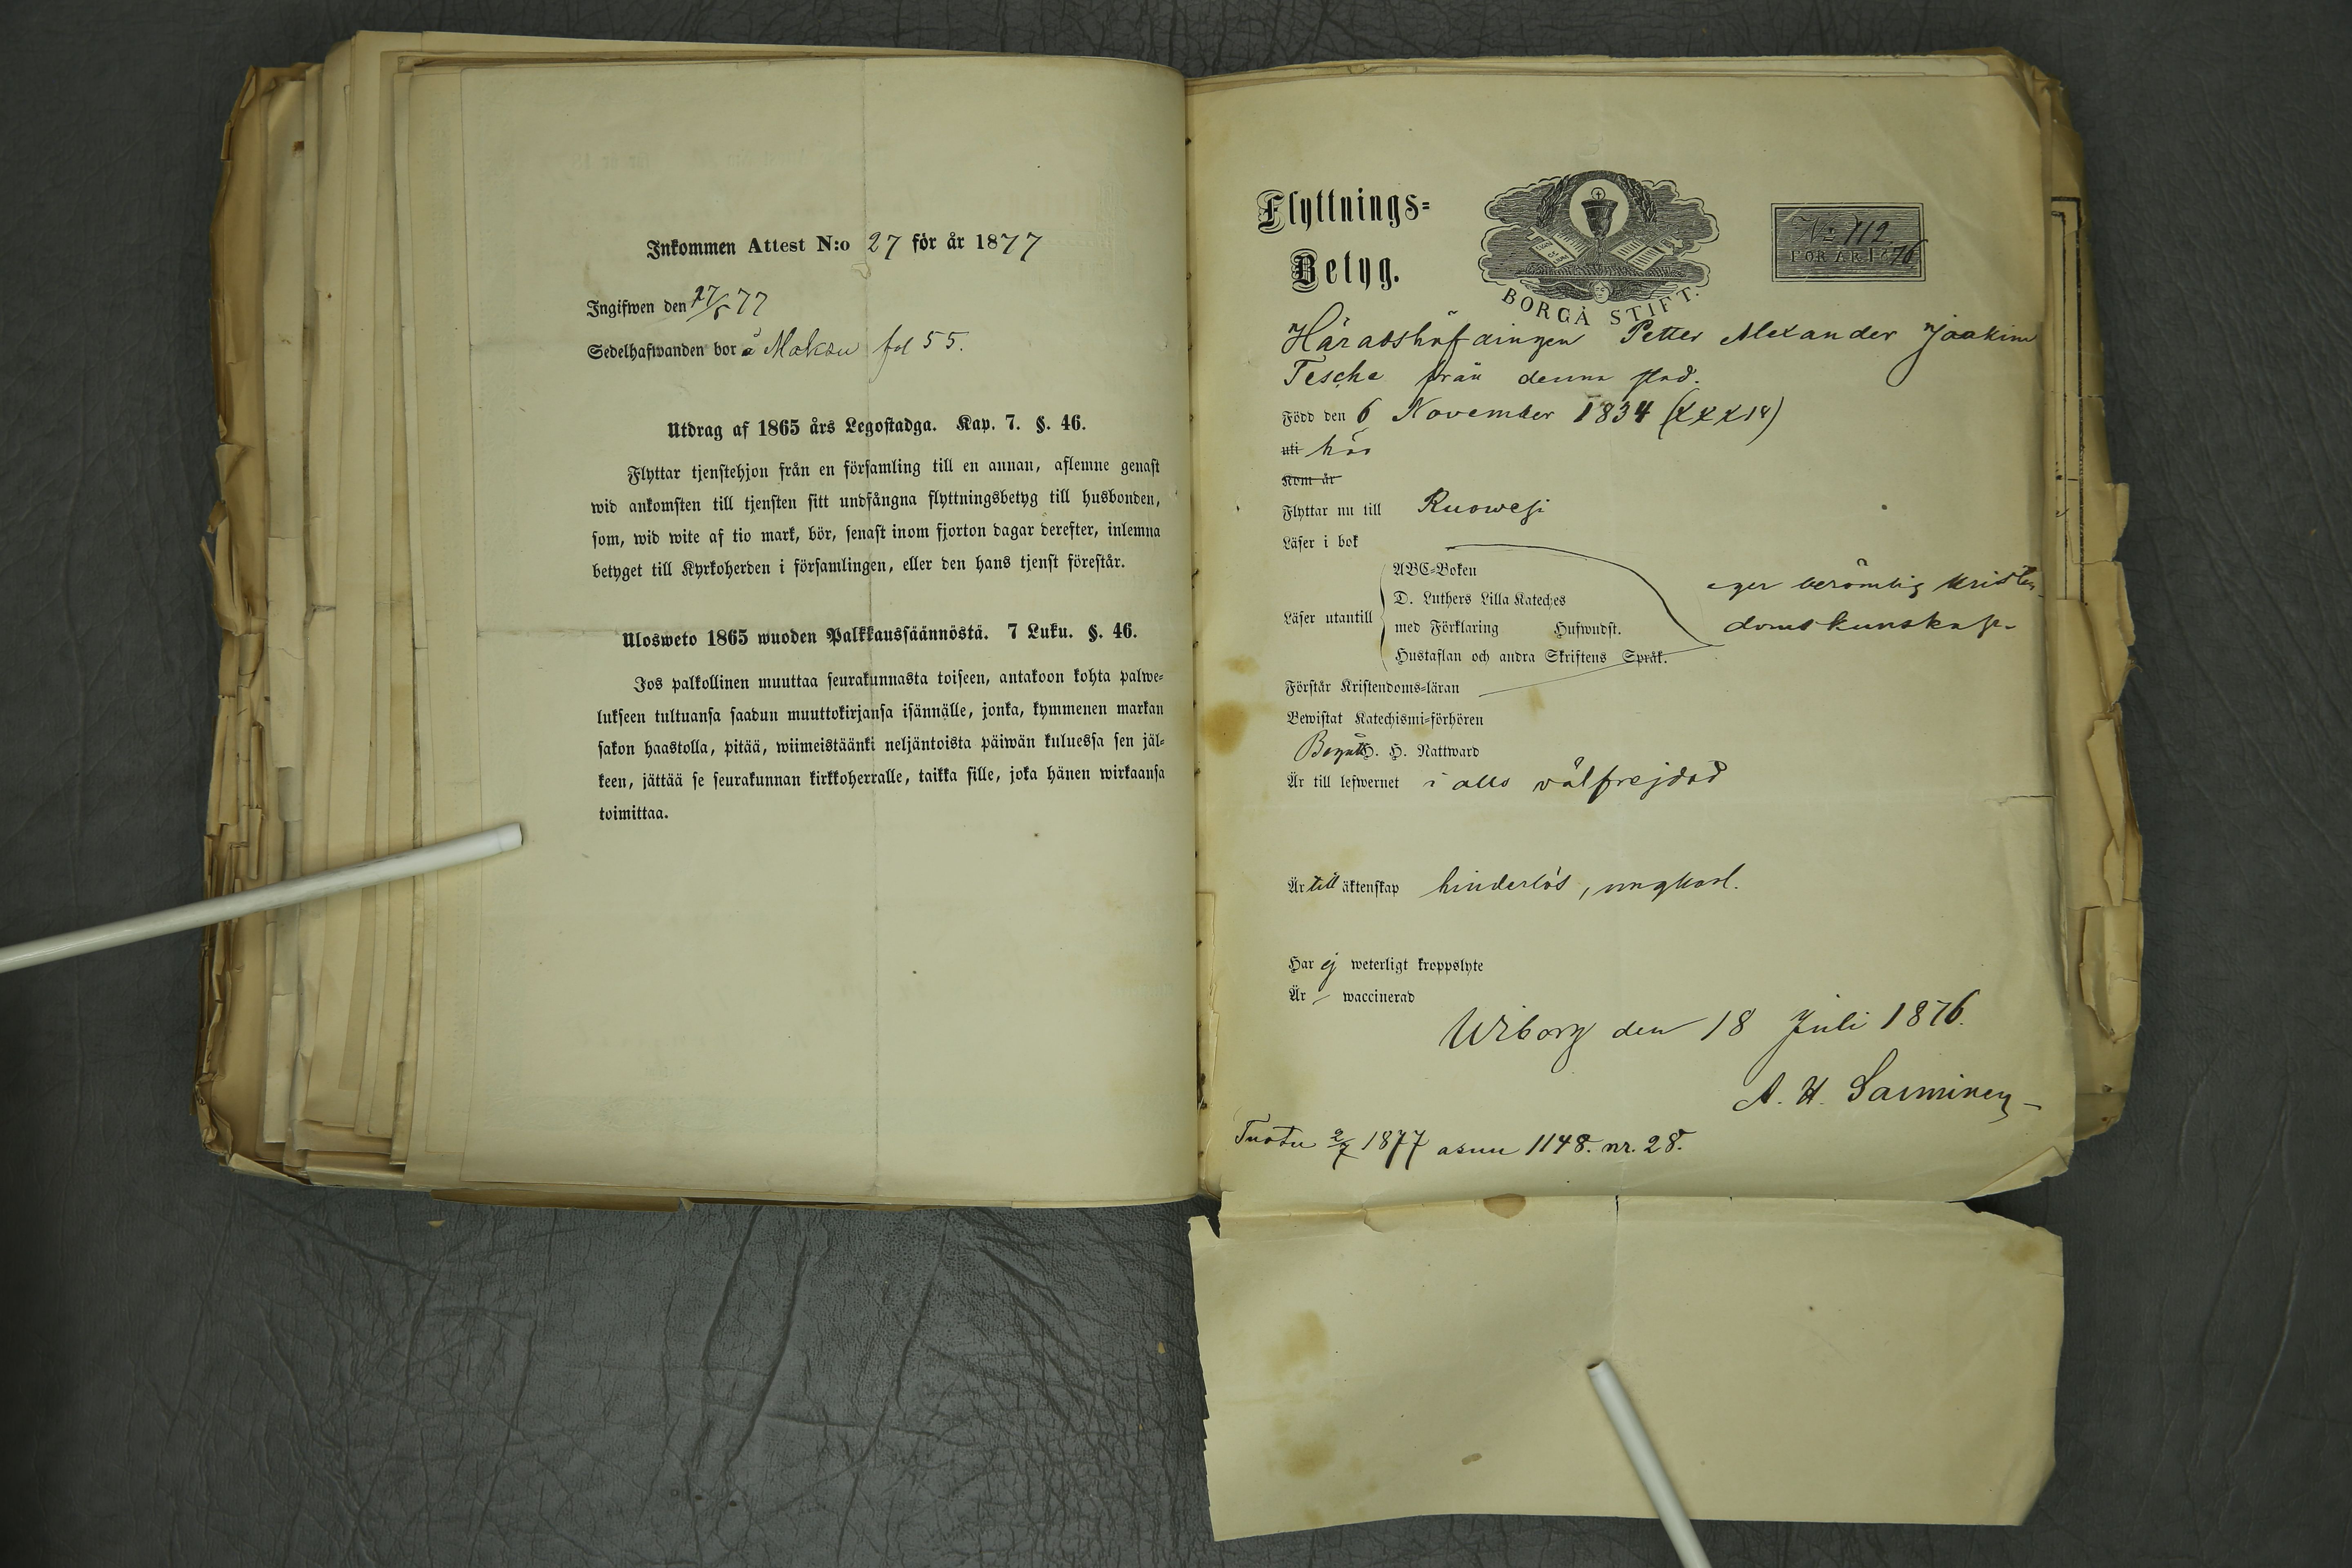 Inkommen Attest N:o 27 för år 1877
Ingifwen den 27/5 77
Sedelhafwanden bor å Moksu fol 55.
Utdrag af 1865 års Legostadga. Kap. 7. §. 46.
Flyttar tjenstehjon från en församling till en annan, aflemne genast
wid ankomsten till tjensten sitt undfångna flyttningsbetyg till husbonden,
som, wid wite af tio mark, bör, senast inom fjorton dagar derefter, inlemna
betyget till Kyrkoherden i församlingen, eller den hans tjenst förestår.
Ulosweto 1865 wuoden Palkkaussäännöstä. 7 Luku. §. 46.
Jos palkollinen muuttaa seurakunnasta toiseen, antakoon kohta palwe=
lukseen tultuansa saadun muuttokirjansa isännälle, jonka, kymmenen markan
sakon haastolla, pitää, wiimeistäänki neljäntoista päiwän kuluessa sen jäl=
keen, jättää se seurakunnan kirkkoherralle, taikka sille, joka hänen wirkaansa
toimittaa.
Flyttnings=
Betyg.
BORGÅ STIFT.
No 112
FÖR ÅR 1876
Häradshöfdingen Petter Alexander Joakim
Tesche från denna stad.
Född den 6 November 1834 (XXXIV)
uti här
Kom år
Flyttar nu till Ruowesi
Läser i bok
Läser utantill
ABC=Boken
D. Luthers Lilla Kateches
med Förklaring Hufwudst.
Hustaflan och andra Skriftens Språk.
eger berömlig kristen
domskunskap.
Förstår Kristendoms=läran
Bewistat Katechismi=förhören
Begått H. H. Nattward
Är till lefwernet i allo välfrejdad
Är till äktenskap hinderlös, ungkarl.
Har ej weterligt kroppslyte
Är waccinerad
Wiborg den 18 Juli 1876.
A. H. Sarminen
Tuotu 2/7 1877 asuu 1148. nr. 28.